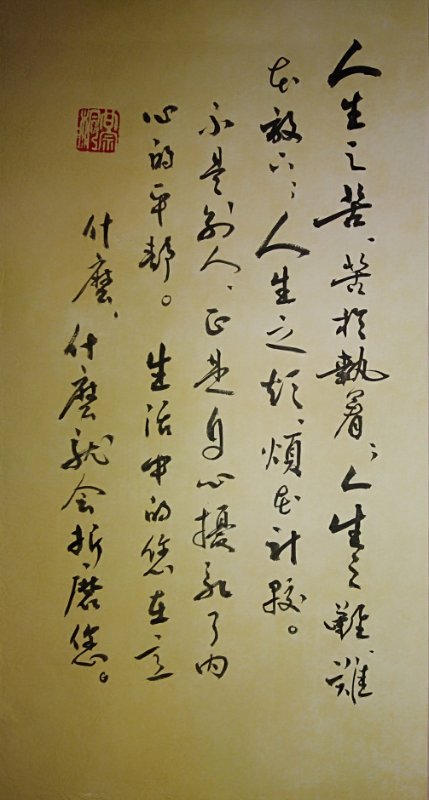 人生之苦、苦於執着;人生之難、難
在放下;人生之烦、煩在計較。
不是别人、正是自心擾乱了内
心的平静。生活中的您在意
什麼、什麼就会折磨您。